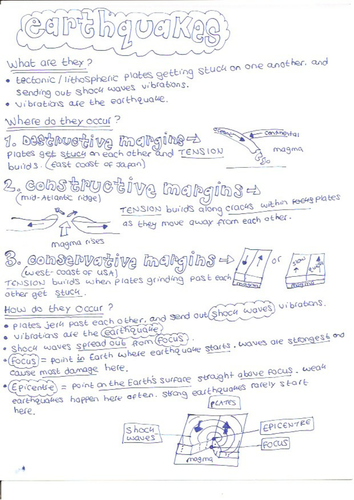 earthquakes
What are they?
• tectonic / lithospheric plates getting stuck on one another. and
sending out shock waves vibrations.
• vibrations are the earthquake.
Where do they occur?
1. Destructive margins→
Plates get stuck on each other and TENSION
builds. (east coast of Japan)
continental
magma
2. constructive margins→
(mid-Atlantic ridge)
TENSION builds along cracks within plates
as they move away from each other.
magma rises
3. conservative margins→
or
(west-coast of USA)
TENSION builds when plates grinding past each
other get stuck.
magma
How do they occur?
• plates jerk past each other, and send out shock waves vibrations.
• vibrations are the earthquake
• shock waves spread out from focus.
• Focus = point in Earth where earthquake starts. Waves are strongest and
cause most damage here.
• Epicentre = point on the Earth's surface straight above focus. weak
earthquakes happen here often. strong earthquakes rarely start
here.
PLATES
Shock
waves
EPICENTRE
FOCUS
magma